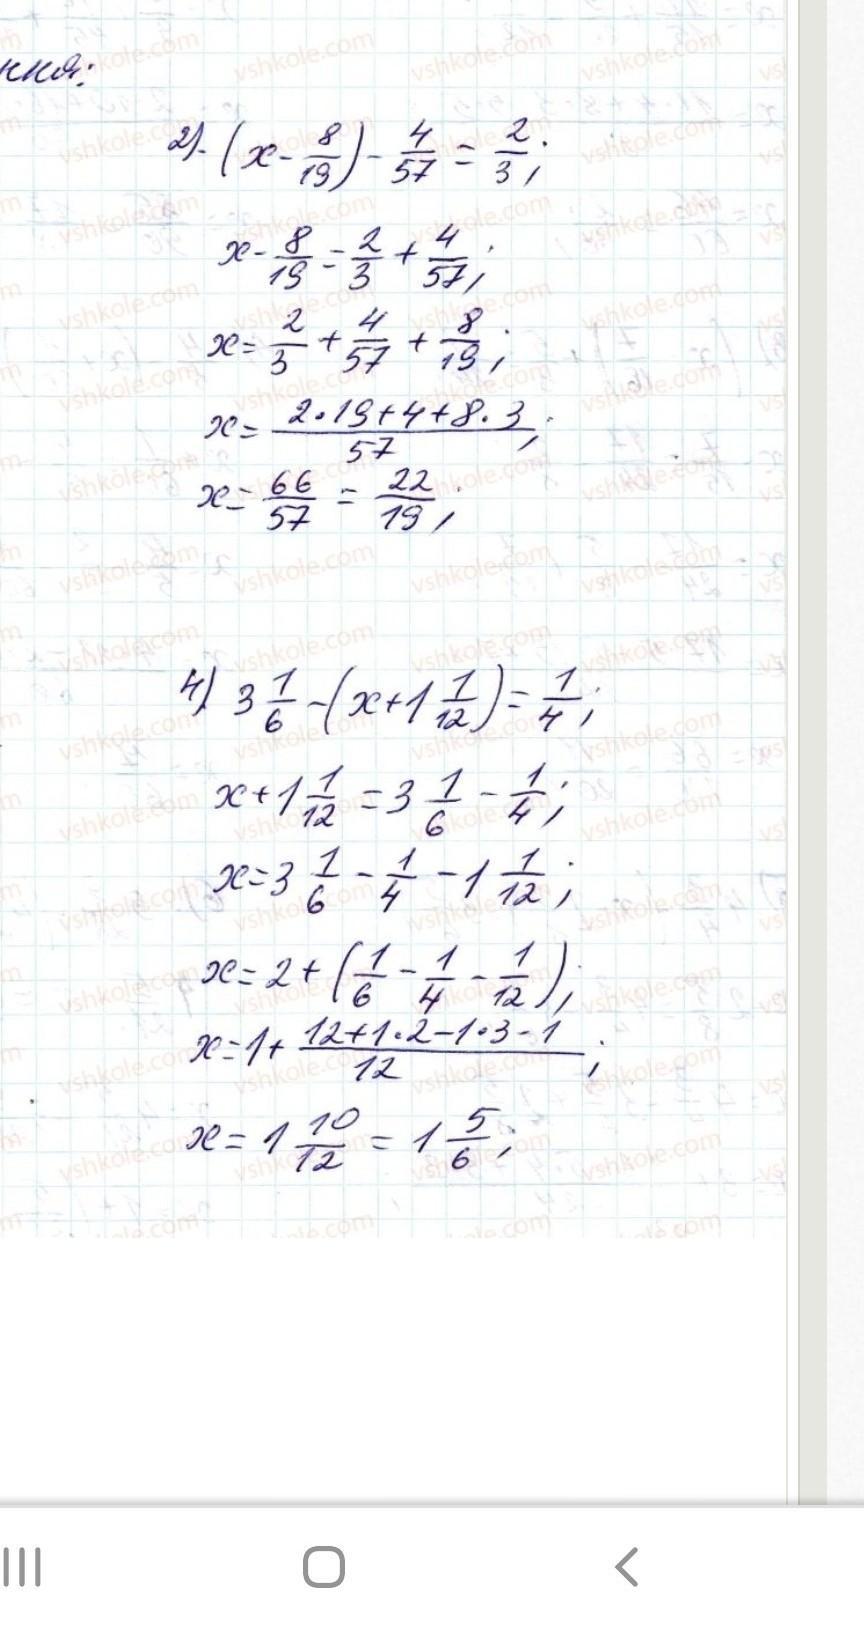 ння:
2). (x - 8/19) - 4/57 = 2/3;
x - 8/19 = 2/3 + 4/57;
x = 2/3 + 4/57 + 8/19;
x = (2•19+4+8•3)/57;
x = 66/57 = 22/19;
4) 3 1/6 - (x + 1 1/12) = 1/4;
x + 1 1/12 = 3 1/6 - 1/4;
x = 3 1/6 - 1/4 - 1 1/12;
x = 2 + (1/6 - 1/4 - 1/12);
x = 1 + (12+1•2-1•3-1)/12;
x = 1 10/12 = 1 5/6;
vshkole.com